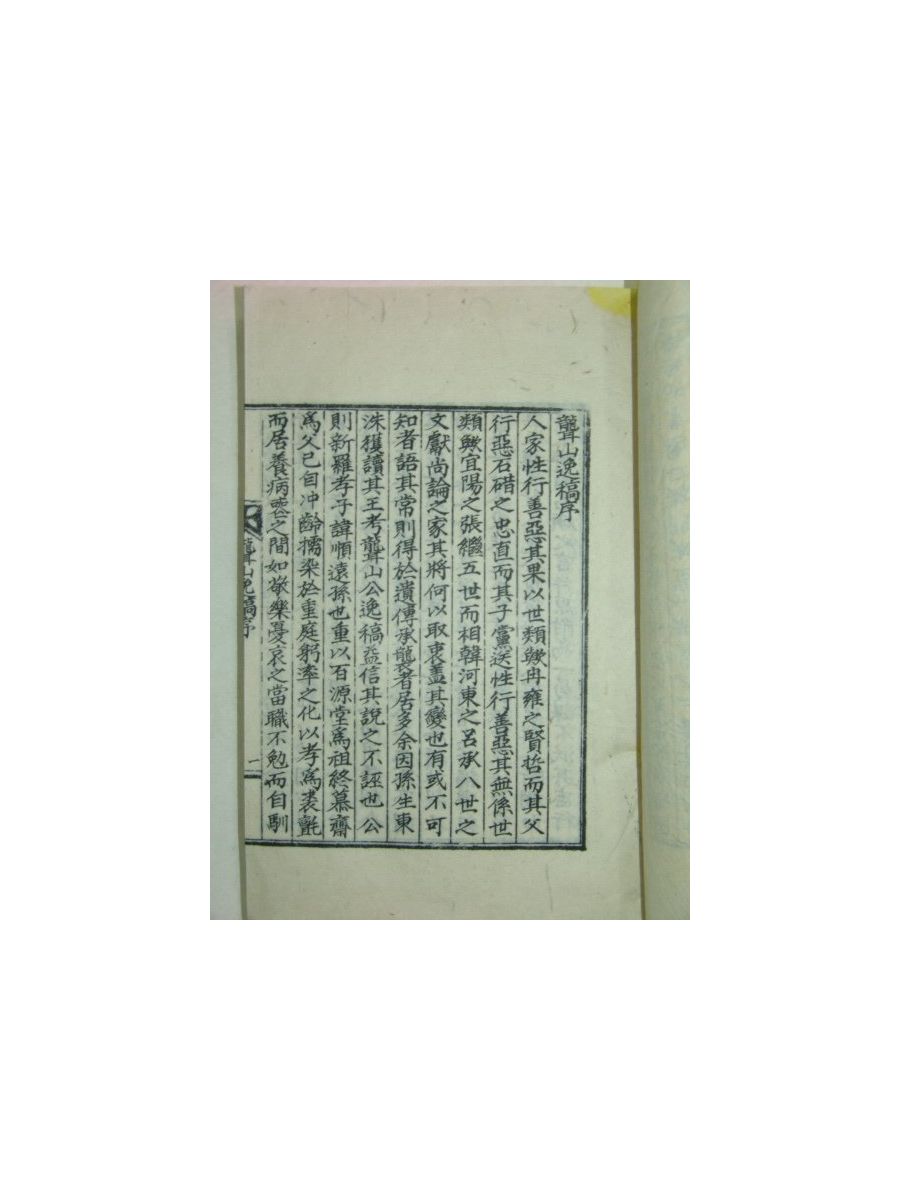 聾山逸稿序
人家性行善惡其果以世類歟冉雍之賢哲而其父
行惡石碏之忠直而其子黨逆性行善惡其無係世
類歟宜陽之張繼五世而相韓河東之呂承八世之
文獻尚論之家其將何以取衷盖其變也有或不可
知者語其常則得於遺傳承襲者居多余因孫生東
洙獲讀其王考聾山公逸稿益信其說之不誣也公
則新羅孝子諱順遠孫也重以百源堂爲祖終慕齋
爲父已自冲齡擩染於重庭躬率之化以孝爲裘氈
而居養病喪之間如敬樂憂哀之當職不勉而自馴
聾山逸稿序 一